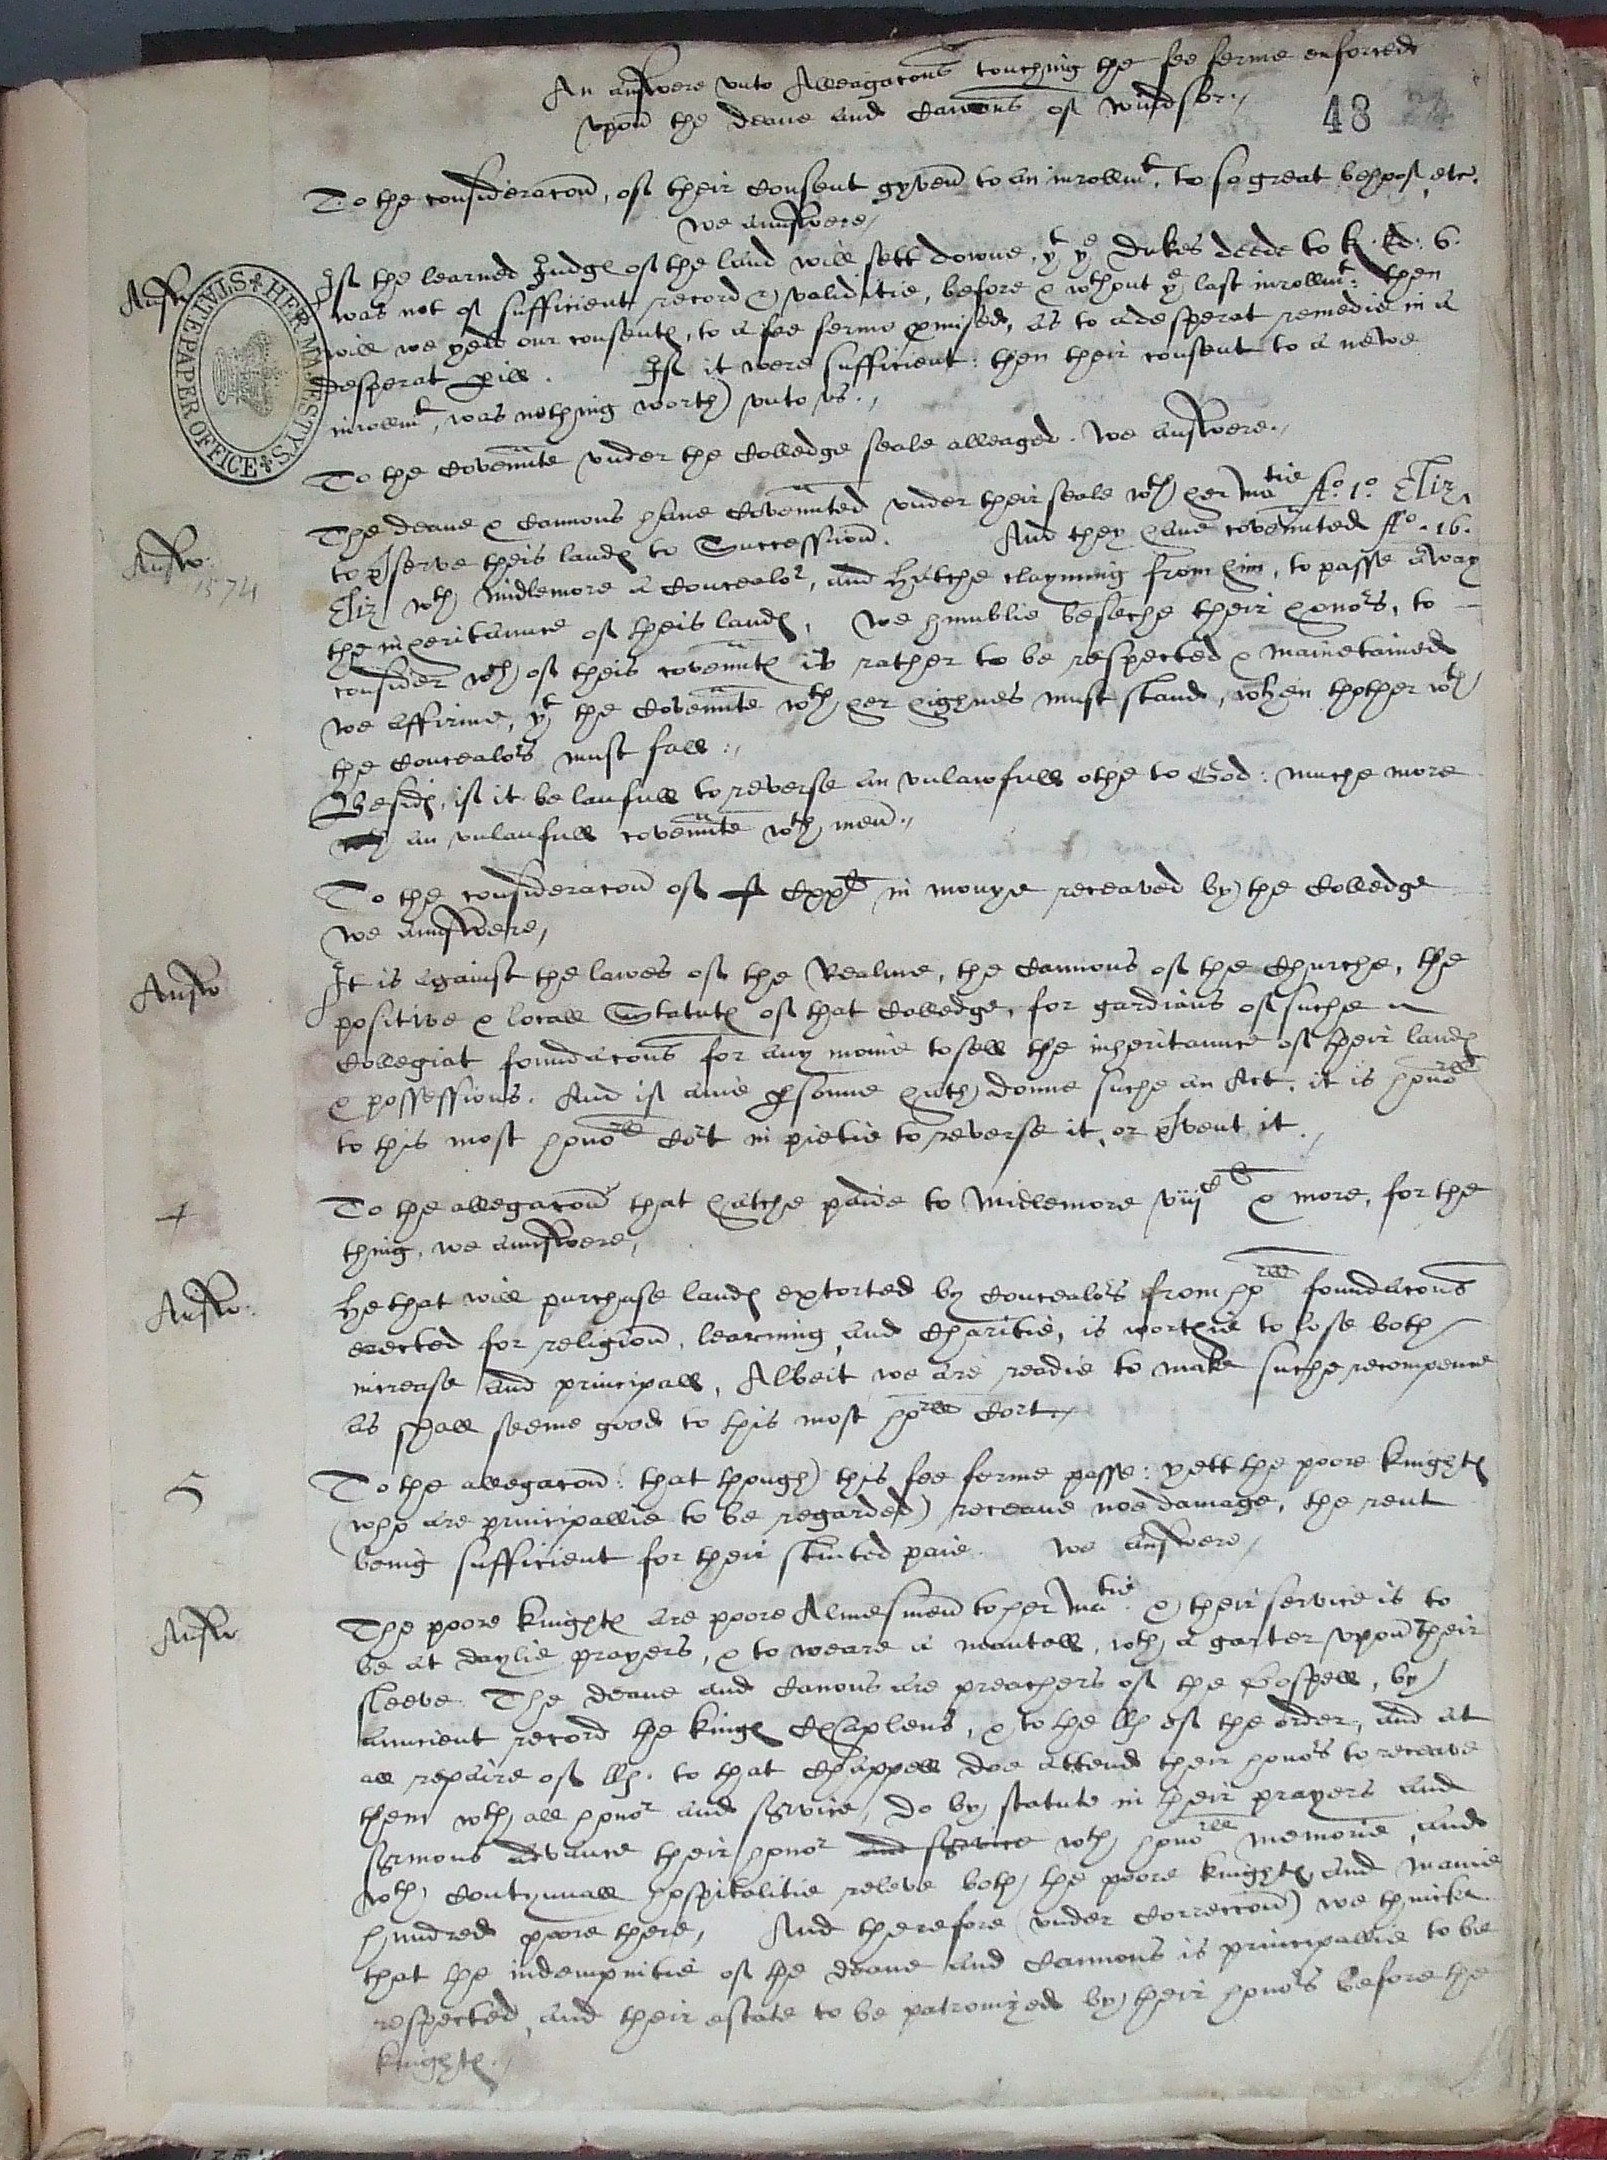 An answere vnto Alleagacons touching the fee ferme enforced
vpon the deane and Canons of windsor./
48
To the consideracon, of their consent gyven to an inrollmt, to so great behoof, etc.
we aunswere/
Answ
If the learned Judges of the land will sett downe, yt ye Dukes deede to K. Ed: 6.
was not of sufficient record & validitie, before & wthout ye last inrollmt: then
will we yeld our consentes, to a fee ferme promised, as to a desperat remedie in a
desperat perill. If it were sufficient: then their consent to a newe
inrollmt, was nothing worth vnto vs./
HER MAJESTYS STATE PAPER OFFICE
To the Covennte vnder the Colledge seale alleaged. We answere./
Answ:
1574
The deane & Cannons have Covennted vnder their seale wth her Matie Ao. 1o. Eliz
to preserve theis landes to Succession. And they have covennted Ao. 16.
Eliz wth Midlemore a Concealor, and Hatche clayming from him, to passe away
the inheritaunce of theis landes, We humblie beseche their honors, to
consider wch of theis covenntes is rather to be respected & maineteined
we affirme, yt the Covennte wth her highnes must stand, when thother wth
the Concealors must fall./
Besides, if it be laufull to reverse an vnlawfull othe to God: muche more
an vnlaufull covennte wth men./
To the consideracon of Cxxli in monye receaved by the Colledge
we aunswere,
Answ
It is against the lawes of the Realme, the Cannons of the Churche, the
positive & locall Statutes of that Colledge, for gardians of suche
Collegiat foundacons for any monie to sell the inheritaunce of their landes
& possessions. And if anie persone hath donne suche an Act, it is honorable
to this most honorable Cort in pietie to reverse it, or prevent it./
4
To the allegacon that hatche paide to Midlemore viijc li & more, for the
thing, we aunswere,
Answ:
He that will purchase landes extorted by Concealors from horable foundacons
erected for religion, learning and Charitie, is worthie to lose both
increase and principall, Albeit we are readie to make suche recompence
as shall seeme good to this most horable Cort./
5
To the allegacon: that though this fee ferme passe: yett the poore knightes
(who are principallie to be regarded) receaue noe damage, the rent
being sufficient for their stinted paie. We answere/
Answ
The poore knightes are poore Almesmen to her Matie. & their service is to
be at daylie prayers, & to weare a mantell, wth a garter vpon their
sleeve. The deane and Canons are preachers of the Gospell, by
auncient record the kinges Chaplens, & to the lls of the order, and at
all repaire of lls. to that Chappell doe attend their honors to receave
them wth all honor and service, do by statute in their prayers and
sermons advance their honor and service wth honorable memorie, and
wth Contynuall hospitalitie releve both the poore knightes and manie
hundred poore there, And therefore (vnder Correccion) we thincke
that the indempnitie of the deane and Cannons is principallie to be
respected, and their estate to be patronized by their honors before the
knightes./